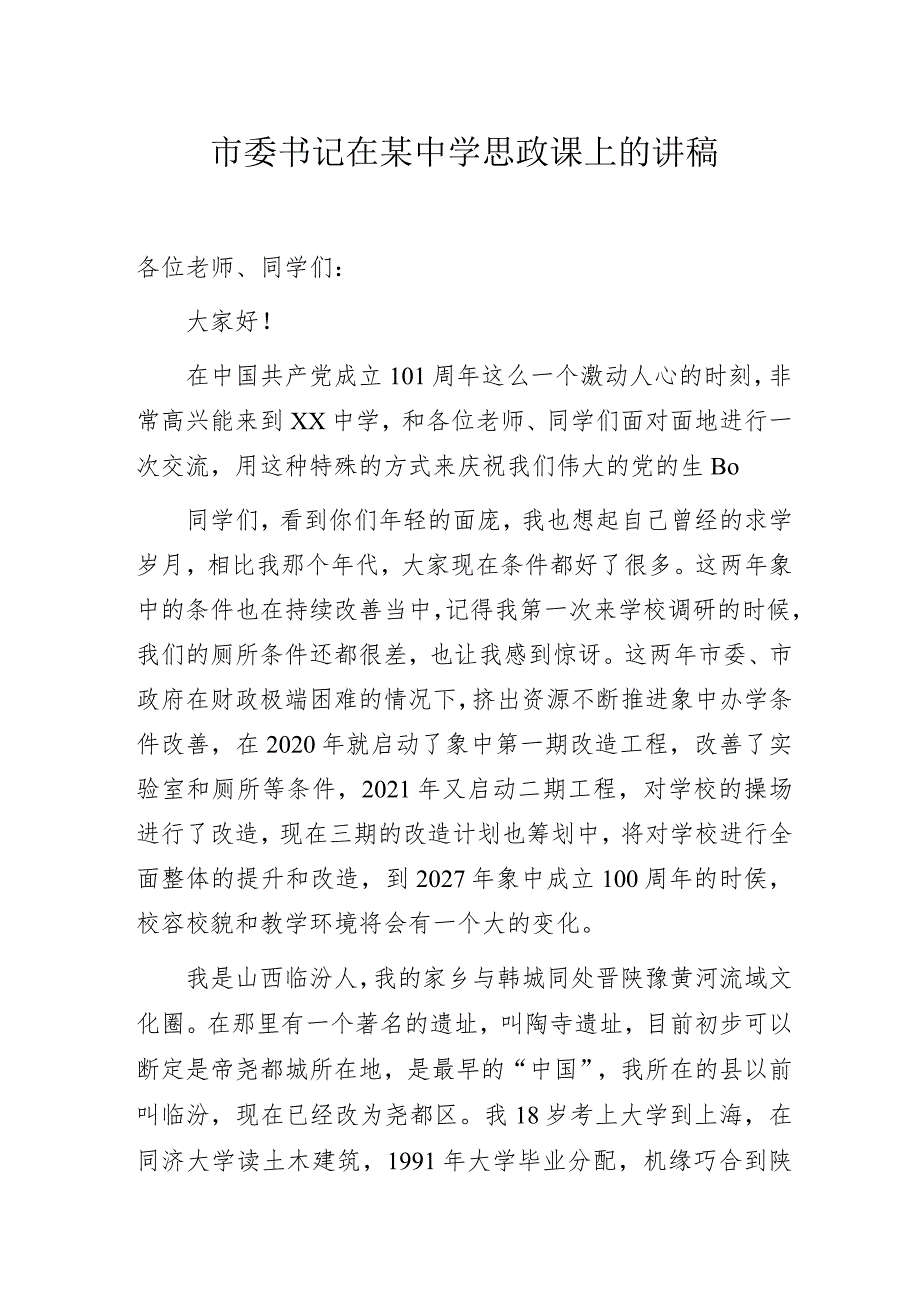 市委书记在某中学思政课上的讲稿
各位老师、同学们：
大家好！
在中国共产党成立 101 周年这么一个激动人心的时刻，非
常高兴能来到 XX 中学，和各位老师、同学们面对面地进行一
次交流，用这种特殊的方式来庆祝我们伟大的党的生 Bo
同学们，看到你们年轻的面庞，我也想起自己曾经的求学
岁月，相比我那个年代，大家现在条件都好了很多。这两年象
中的条件也在持续改善当中，记得我第一次来学校调研的时候，
我们的厕所条件还都很差，也让我感到惊讶。这两年市委、市
政府在财政极端困难的情况下，挤出资源不断推进象中办学条
件改善，在 2020 年就启动了象中第一期改造工程，改善了实
验室和厕所等条件，2021 年又启动二期工程，对学校的操场
进行了改造，现在三期的改造计划也筹划中，将对学校进行全
面整体的提升和改造，到 2027 年象中成立 100 周年的时侯，
校容校貌和教学环境将会有一个大的变化。
我是山西临汾人，我的家乡与韩城同处晋陕豫黄河流域文
化圈。在那里有一个著名的遗址，叫陶寺遗址，目前初步可以
断定是帝尧都城所在地，是最早的“中国”，我所在的县以前
叫临汾，现在已经改为尧都区。我 18 岁考上大学到上海，在
同济大学读土木建筑，1991 年大学毕业分配，机缘巧合到陕